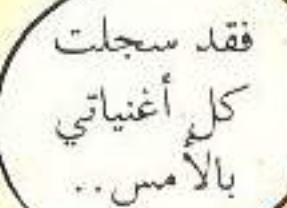 فقد سجلت
كل أغنياتي
بالأمس..